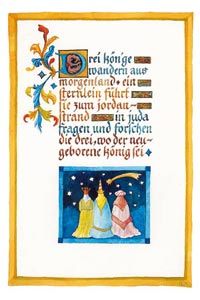 Drei kön'ge
wandern aus
morgenland · ein
sternlein führt
sie zum jordan=
strand in juda
fragen und forschen
die drei, wo der neu=
geborene könig sei